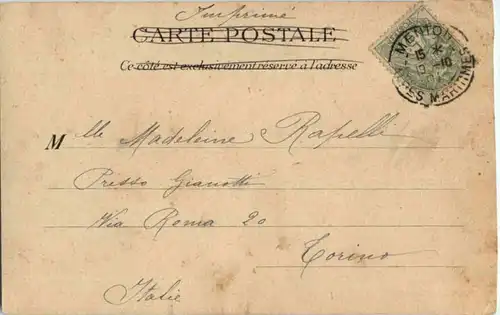 Imprimé
CARTE POSTALE
Ce côté est exclusivement réservé à l'adresse
MENTON
15
ES MARITIMES
Mlle Madeleine Rapelli
Presso Gianotti
Via Roma 20
Torino
Italie